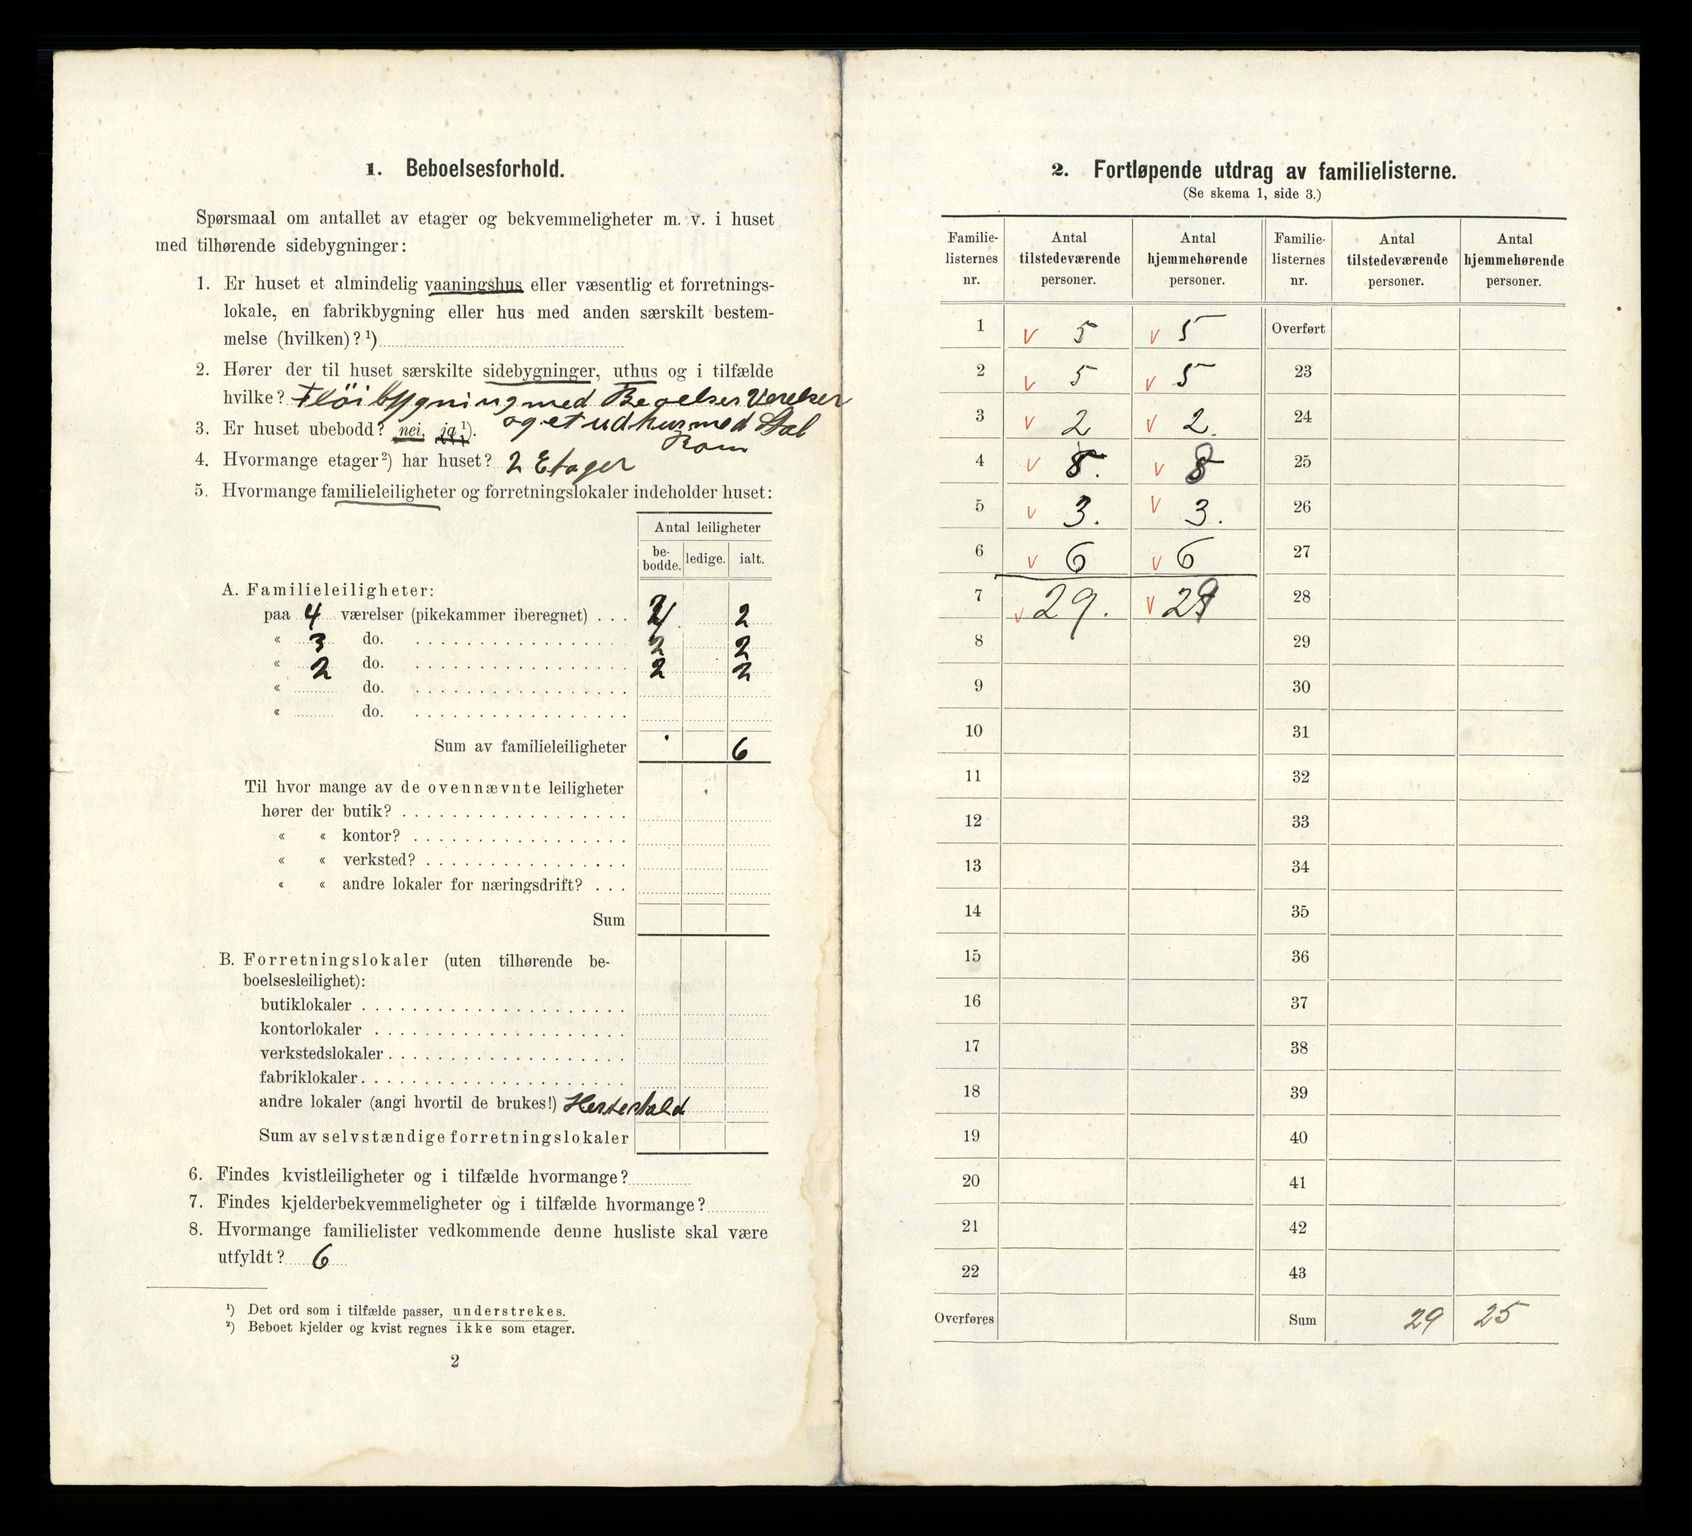 1. Beboelsesforhold.
Spørsmaal om antallet av etager og bekvemmeligheter m. v. i huset
med tilhørende sidebygninger:
1. Er huset et almindelig vaaningshus eller væsentlig et forretnings-
lokale, en fabrikbygning eller hus med anden særskilt bestem-
melse (hvilken)? ¹)
2. Hører der til huset særskilte sidebygninger, uthus og i tilfælde
hvilke? Fløibygning med Beoelses Værelser
og et udhus med Stal
Rom
3. Er huset ubebodd? nei, ja ¹).
4. Hvormange etager ²) har huset? 2 Etager
5. Hvormange familieleiligheter og forretningslokaler indeholder huset:
Antal leiligheter
be-bodde. ledige. ialt.
A. Familieleiligheter:
paa 4 værelser (pikekammer iberegnet) . . . 2 2
« 3 do. 2 2
« 2 do. 2 2
« do.
« do.
Sum av familieleiligheter 6
Til hvor mange av de ovennævnte leiligheter
hører der butik?
« « kontor?
« « verksted?
« « andre lokaler for næringsdrift?
Sum
B. Forretningslokaler (uten tilhørende be-
boelsesleilighet):
butiklokaler
kontorlokaler
verkstedslokaler
fabriklokaler
andre lokaler (angi hvortil de brukes!) Hestestald
Sum av selvstændige forretningslokaler
6. Findes kvistleiligheter og i tilfælde hvormange?
7. Findes kjelderbekvemmeligheter og i tilfælde hvormange?
8. Hvormange familielister vedkommende denne husliste skal være
utfyldt? 6
¹) Det ord som i tilfælde passer, understrekes.
²) Beboet kjelder og kvist regnes ikke som etager.
2
2. Fortløpende utdrag av familielisterne.
(Se skema 1, side 3.)
Familie-listernes nr. Antal tilstedeværende personer. Antal hjemmehørende personer. Familie-listernes nr. Antal tilstedeværende personer. Antal hjemmehørende personer.
1 v 5 v 5 Overført
2 v 5 v 5 23
3 v 2 v 2. 24
4 v 8. v 8 25
5 v 3. v 3. 26
6 v 6 v 6 27
7 v 29. v 29 28
8 29
9 30
10 31
11 32
12 33
13 34
14 35
15 36
16 37
17 38
18 39
19 40
20 41
21 42
22 43
Overføres Sum 29 25